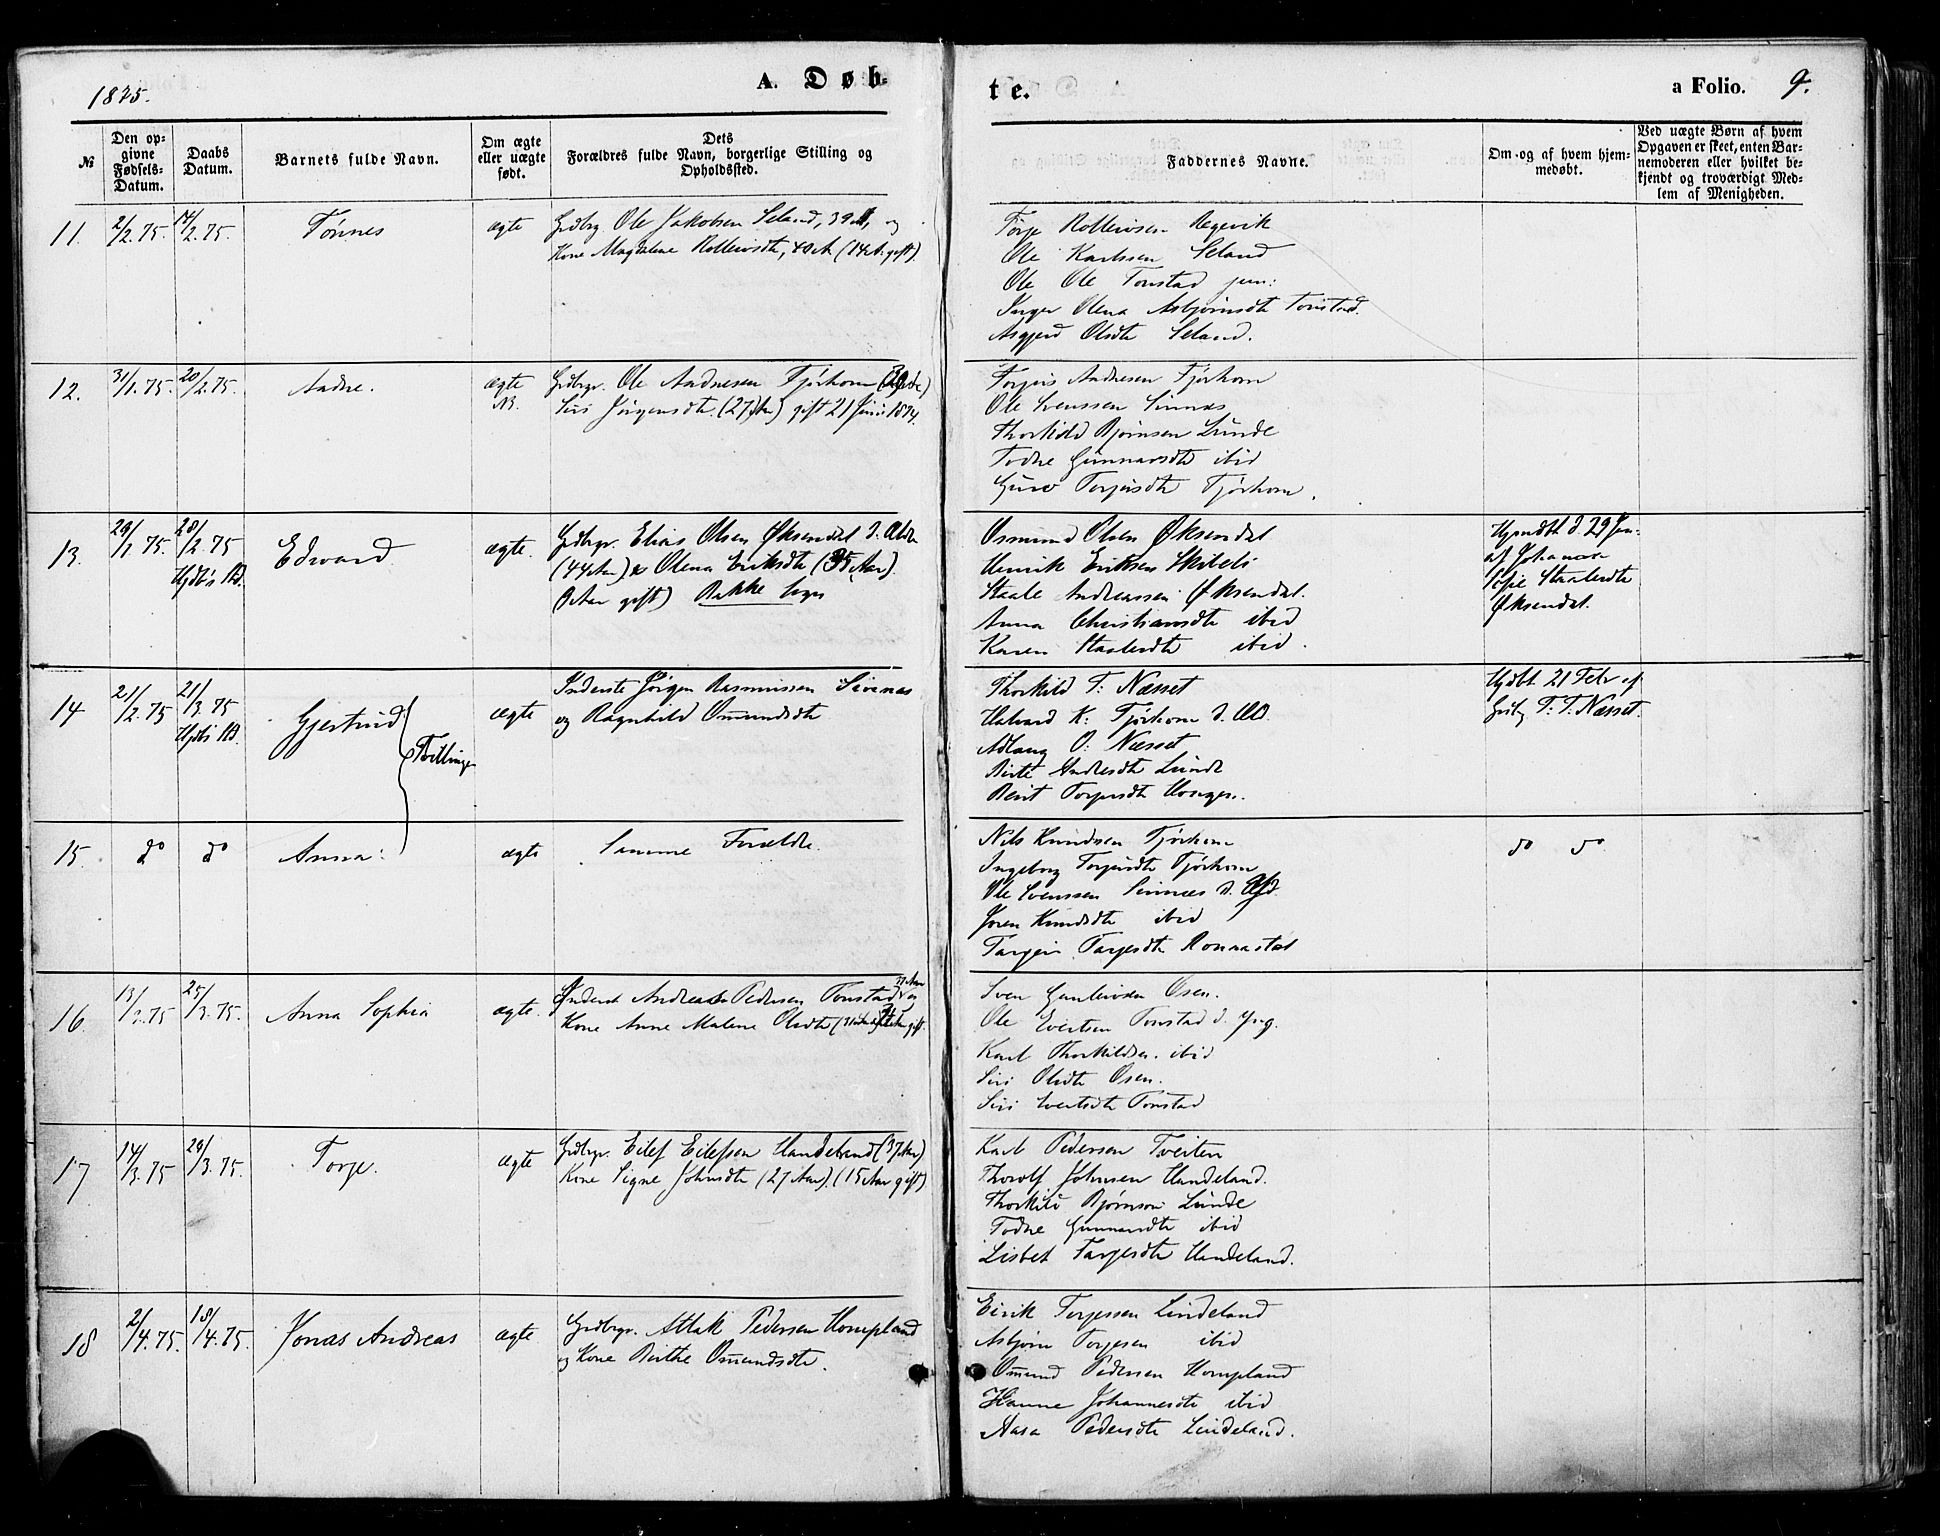 1875.
A. Døb-
te.
a Folio. 9.
№
Den op-
givne
Fødsels-
Datum.
Daabs
Datum.
Barnets fulde Navn.
Om ægte
eller uægte
født.
Dets
Forældres fulde Navn, borgerlige Stilling og
Opholdssted.
Faddernes Navne.
Om og af hvem hjem-
medøbt.
Ved uægte Børn af hvem
Opgaven er skeet, enten Bar-
nemoderen eller hvilket be-
kjendt og troværdigt Med-
lem af Menigheden.
11. 2/2.75. 14/2.75. Tønnes ægte
Grdbrgr. Ole Jakobsen Seland, 39 A, og
Kone Magdalene Rolleivsdtr, 40 A (14 A. gift).
Tørje Rolleivsen Regevik
Ole Karlssen Seland
Ole Ole Tonstad jun:
Inger Olena Asbjørnsdtr Tonstad.
Asgjerd Olsdtr Seland.
12. 31/1.75. 20/2.75. Andre. ægte
Grdbrgr. Ole Andresen Tjørhom
Siri Jørgensdtr. (27 Aar) gift 21 Juni 1874.
Torgeirs Andresen Tjørhom
Ole Svenssen Sinnes
Thorkild Bjørnsen Lunde
Todne Gunnarsdtr ibid
Guro Torgeirsdtr Tjørhom.
13. 29/1.75. 28/2.75 Edvard ægte.
Hjdbt's Bd.
Grdbrgr. Elias Olsen Øksendal d. Ældre
(44 Aar) & Olena Eriksdtr (35 Aar).
3 Aar gift) Bakke Sogn
Osmund Olsen Øksendal
Henrik Eriksen Skibeli
Staale Andreassen Øksendal.
Anna Christiansdtr ibid
Karen Staalesdtr ibid.
Hjmdbt d. 29 Jan.
af Johanne
Sofie Staalesdtr
Øksendal.
14 21/2.75 21/3.75 Gjertrud ægte
Hjdbt's Bd.
Tvillinger
Inderste Jørgen Rasmussen Sirenes
og Ragnhild Omundsdtr
Thorkild T: Næsset
Halvard K: Tjørhom d. Æld.
Adlaug O: Næsset
Birte Andresdtr Lunde
Berit Torgersdtr Haugen.
Hjdbt. 21 Febr af
Grdbrg T. T. Næsset.
15. do do Anna. ægte
Samme Forældre.
Nils Knudsen Tjørhom
Ingeborg Torgeirsdtr Tjørhom
Ole Svenssen Sinnes d. Æld.
Joren Knudsdtr ibid
Targjer Targesdtr Ronaastøl
do do
16. 13/2.75 25/3.75. Anna Sophia ægte.
Inderst Andreas Pedersen Tonstad og
Kone Anne Malene Olsdtr
Sven Gunleivsen Osen.
Ole Evertsen Tonstad d. Yng.
Karl Thorkildsen ibid
Siri Olsdtr Osen.
Siri Evertsdtr Tonstad
17 14/3.75 29/3.75. Torje. ægte
Grdbrgr. Eilef Eilefsen Handeland (37 Aar)
Kone Signe Johnsdtr (27 Aar). (15 Aar gift)
Karl Pedersen Tveiten
Thorolf Johnsen Handeland.
Thorkild Bjørnson Lunde
Todne Gunnarsdtr ibid
Lisbet Targesdtr Handeland.
18 2/4.75. 18/4.75. Jonas Andreas ægte
Grdbrgr. Atlak Pedersen Hompland
og Kone Birthe Omundsdtr.
Eirik Torgessen Lindeland
Asbjørn Torgesen ibid
Omund Pedersen Hompland
Hanne Johannesdtr ibid
Aasa Pedersdtr Lindeland.